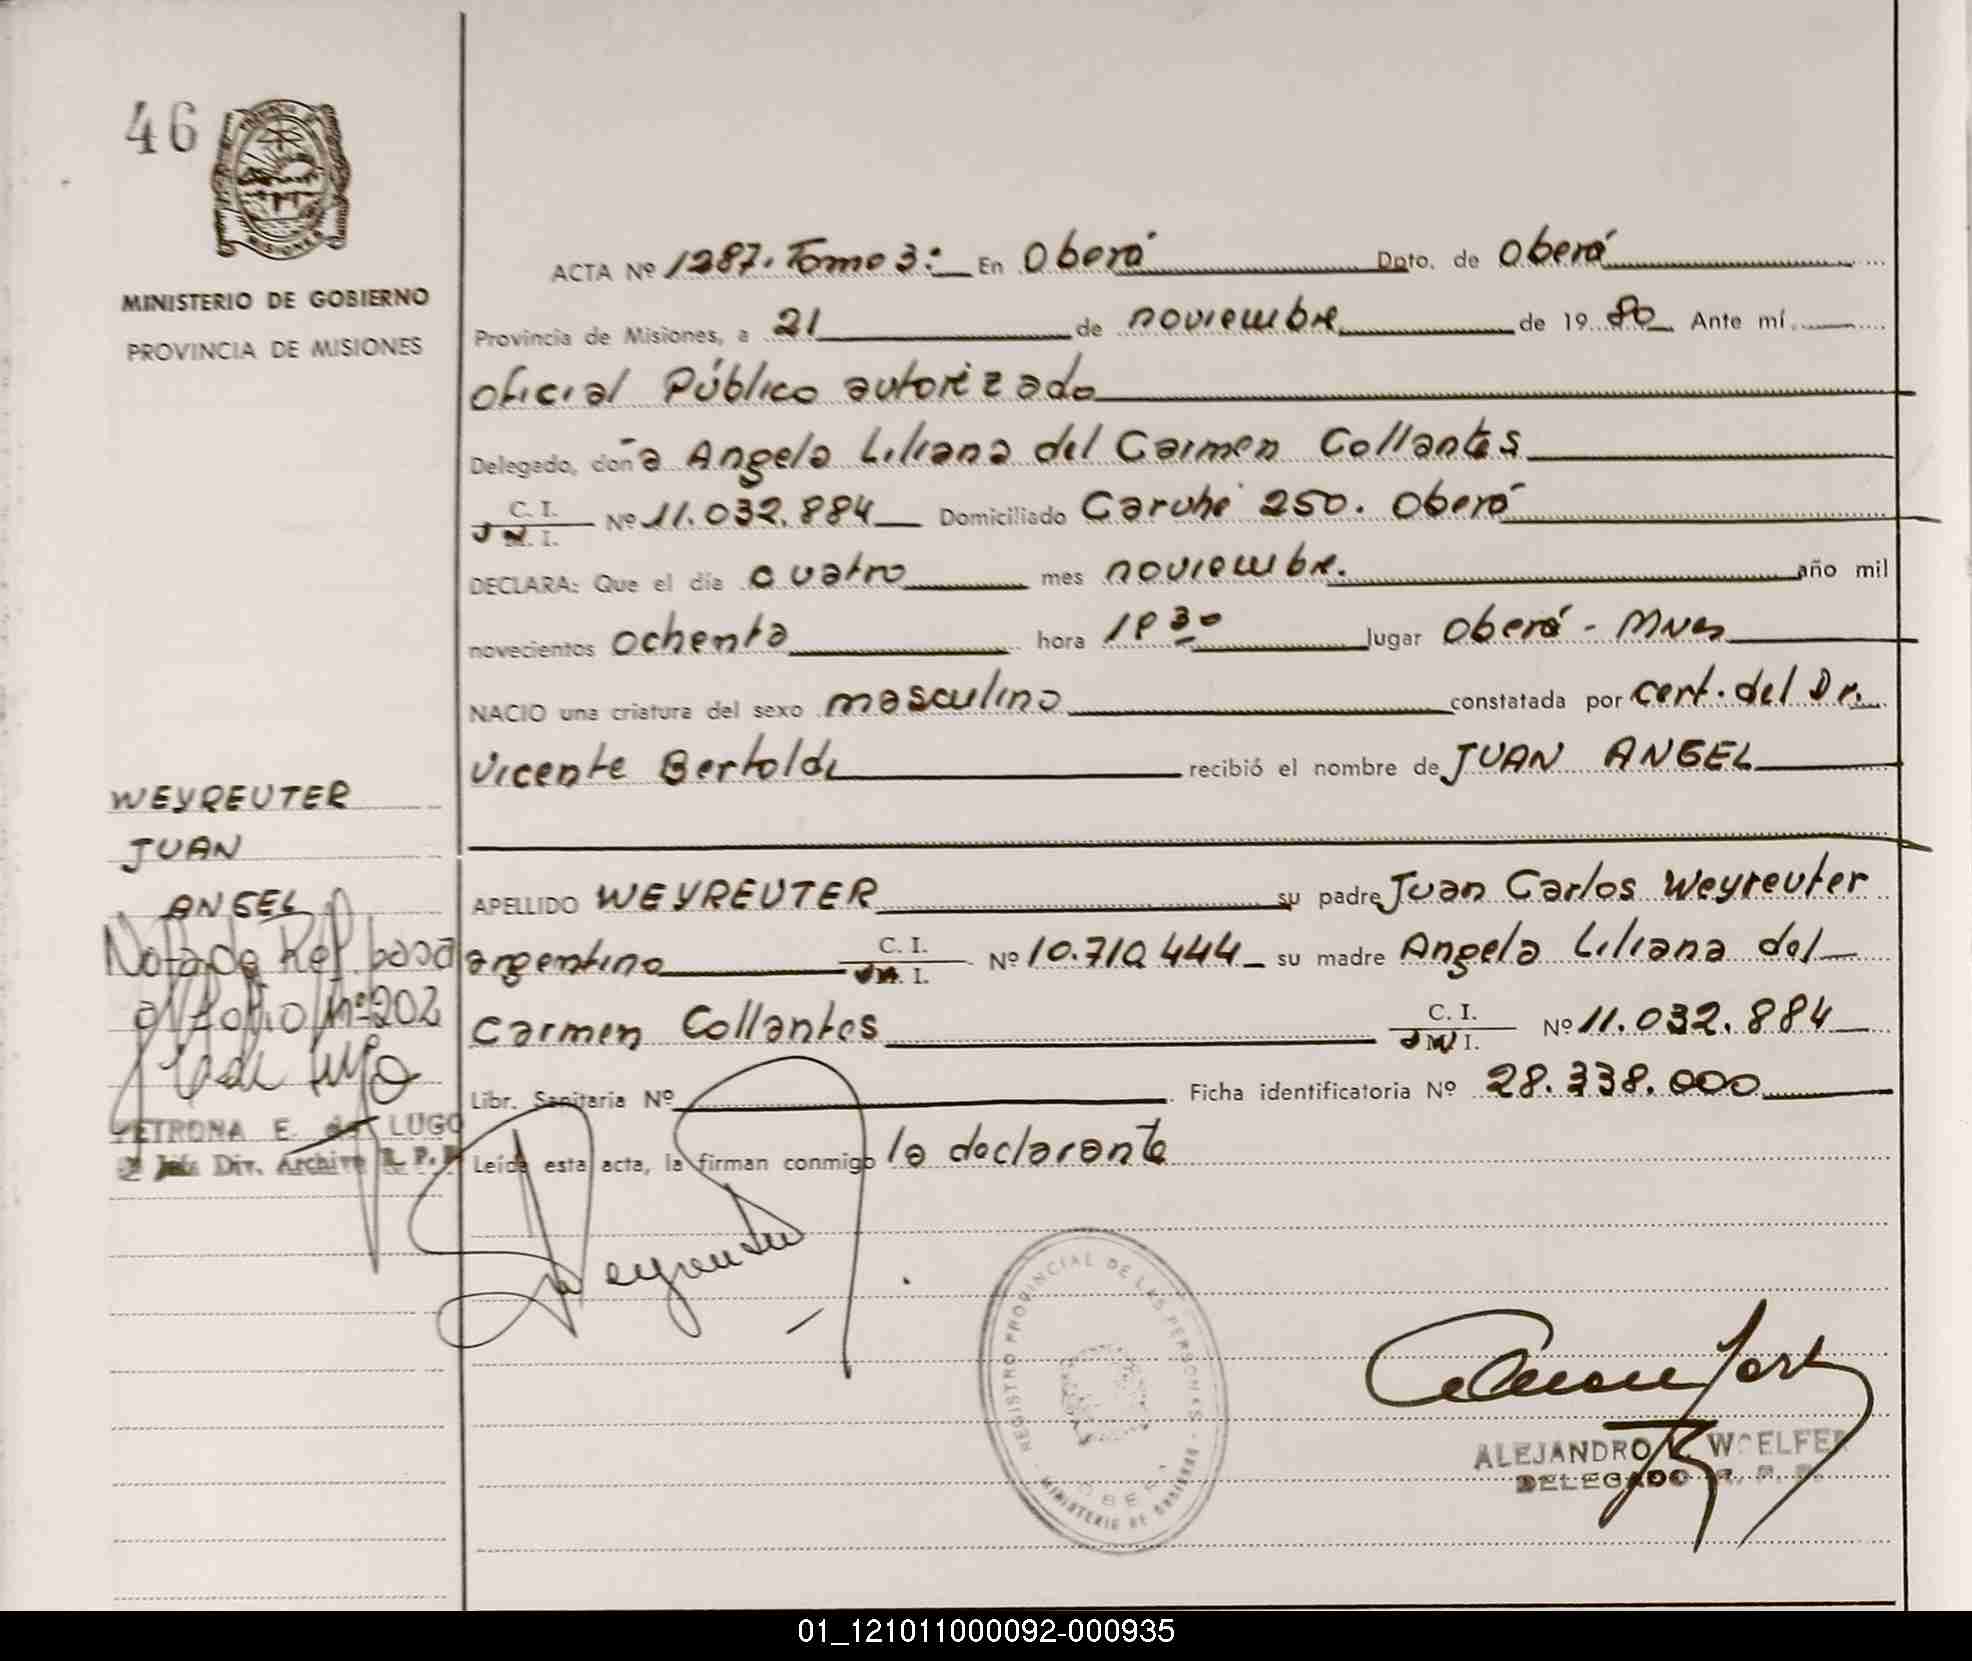 46
MISIONES
MINISTERIO DE GOBIERNO
PROVINCIA DE MISIONES
ACTA Nº 1287. Tomo 3: En Oberá Dpto. de Oberá
Provincia de Misiones, a 21 de noviembre de 1980 Ante mí
oficial Público autorizado
Delegado, doña Angela Liliana del Carmen Collantes
C. I. M. I. Nº 11.032.884 Domiciliado Caruhé 250. Oberá
DECLARA: Que el día cuatro mes noviembre. año mil
novecientos ochenta hora 18 30 lugar Oberá - Mnes
NACIO una criatura del sexo masculino constatada por cert. del Dr.
Vicente Bertoldi recibió el nombre de JUAN ANGEL
WEYREUTER
JUAN
ANGEL
APELLIDO WEYREUTER su padre Juan Carlos Weyreuter
argentino C. I. M. I. Nº 10.710.444 su madre Angela Liliana del
Carmen Collantes C. I. M. I. Nº 11.032.884
Libr. Sanitaria Nº Ficha identificatoria Nº 28.338.000
Leída esta acta, la firman conmigo la declarante
Nota de Ref. basa
al folio nº 202
PETRONA E. de LUGO
Div. Archivo R. P. P.
Weyreuter
REGISTRO PROVINCIAL DE LAS PERSONAS
MINISTERIO DE GOBIERNO
OBERA
ALEJANDRO WOELFER
DELEGADO R. P. P.
01_121011000092-000935